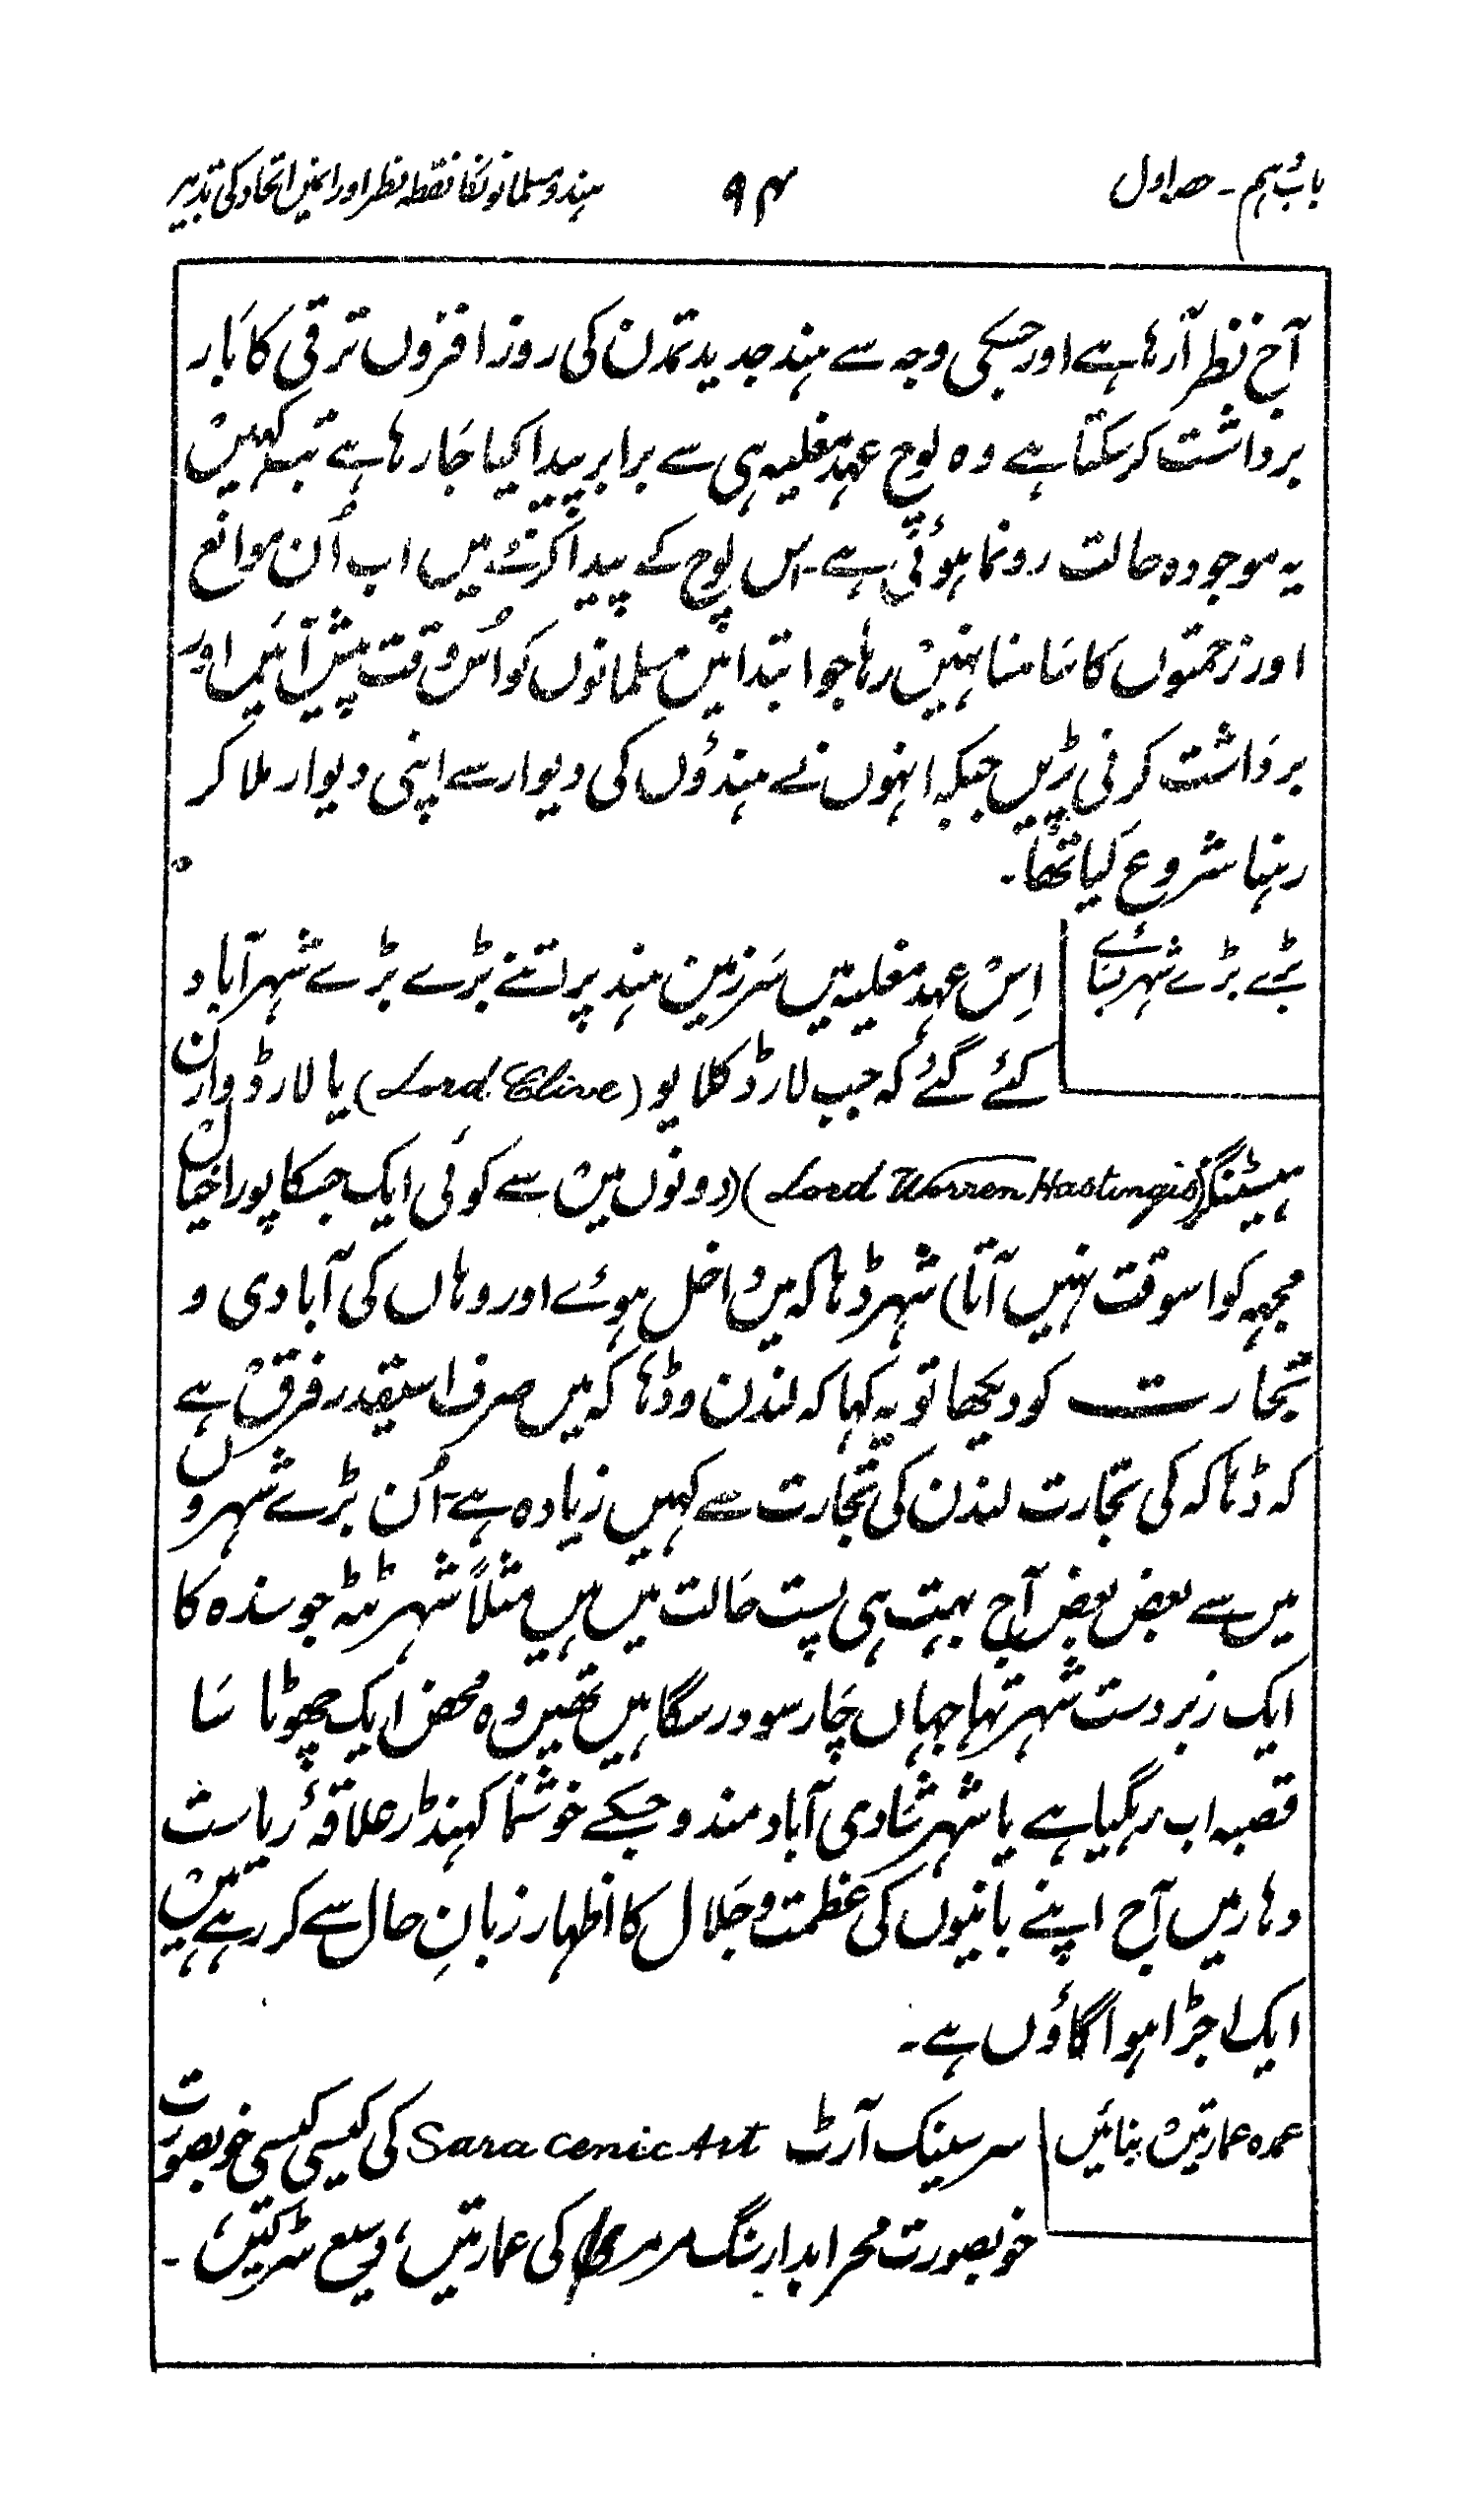 باب نہم - حصہ اول ۹۴ ہندو مسلمانونکا نقطہ نظر اور انمیں اتحاد کی تدبیر
آج نظر آرہا ہے اور جسکی وجہ سے ہند جدید تمدن کی روز افزوں ترقی کا بار
برداشت کر سکتا ہے وہ لوچ عہد مغلیہ ہی سے برابر پیدا کیا جارہا ہے تب کہیں
یہ موجودہ حالت رونما ہوئی ہے۔ اس لوچ کے پیدا کرنے میں اب اُن موانع
اور زحمتوں کا سامنا نہیں رہا جو ابتدا میں مسلمانوں کو اُس وقت پیش آئیں اور
برداشت کرنی پڑیں جبکہ انہوں نے ہندؤں کی دیوار سے اپنی دیوار ملا کر
رہنا شروع کیا تھا۔
بڑے بڑے شہر بنائے
اِس عہد مغلیہ میں سرزمین ہند پر اتنے بڑے بڑے شہر آباد
کئے گئے کہ جب لارڈ کلایو (Lord Clive) یا لارڈ وارن
ہیسٹنگز (Lord Warren Hastingis) (دونوں میں سے کوئی ایک جسکا پورا خیال
مجہہ کو اسوقت نہیں آتا) شہر ڈہاکہ میں داخل ہوئے اور وہاں کی آبادی و
تجارت کو دیکھا تو یہ کہا کہ لندن و ڈہاکہ میں صرف اسیقدر فرق ہے
کہ ڈہاکہ کی تجارت لندن کی تجارت سے کہیں زیادہ ہے۔ اُن بڑے شہروں
میں سے بعض بعض آج بہت ہی پست حالت میں ہیں مثلاً شہر ٹٹہ جو سندہ کا
ایک زبردست شہر تہا جہاں چار سو درسگاہیں تھیں وہ محض ایک چھوٹا سا
قصبہ اب رہگیا ہے یا شہر شادی آباد مندو جسکے خوشنما کہنڈر علاقۂ ریاست
دہار میں آج اپنے بانیوں کی عظمت و جلال کا اظہار زبانِ حال سے کر رہے ہیں
ایک اجڑا ہوا گاؤں ہے۔
عمدہ عمارتیں بنائیں
سرسینک آرٹ Saracenic Art کی کیسی کیسی خوبصورت
خوبصورت محرابدار سنگ مرمر کی عمارتیں، وسیع سڑکیں، ۔